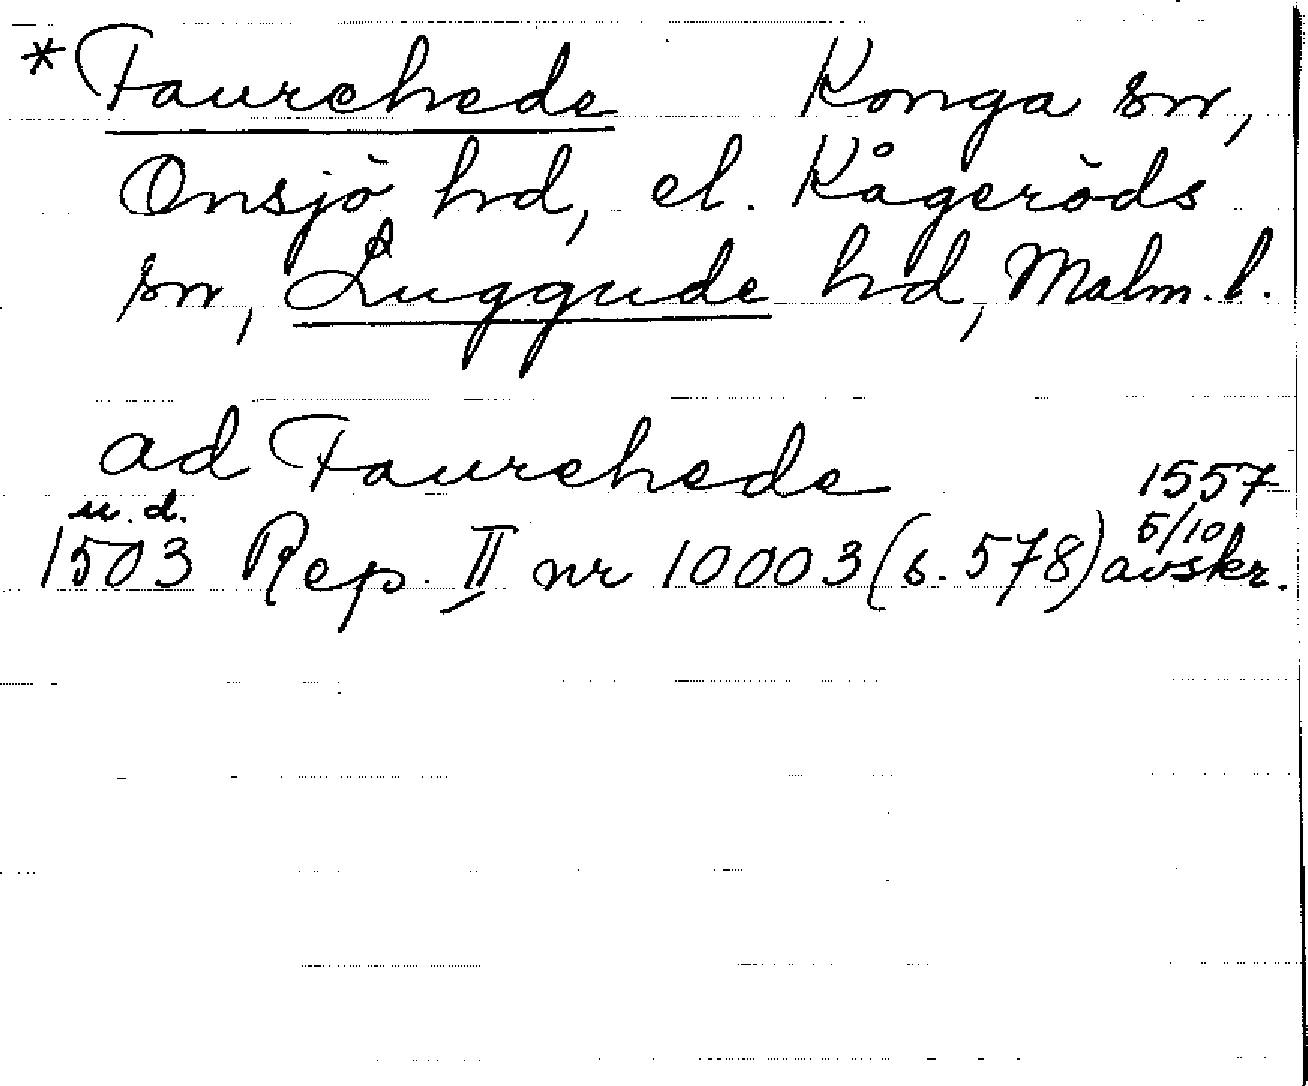 *Faurehede Konga sn,
Onsjö hd, el. Kågeröds
sn, Luggude hd, Malm. l.
ad Faurehede
1557
u. d. 5/10
1503 Rep. II nr 10003 (s. 578) avskr.